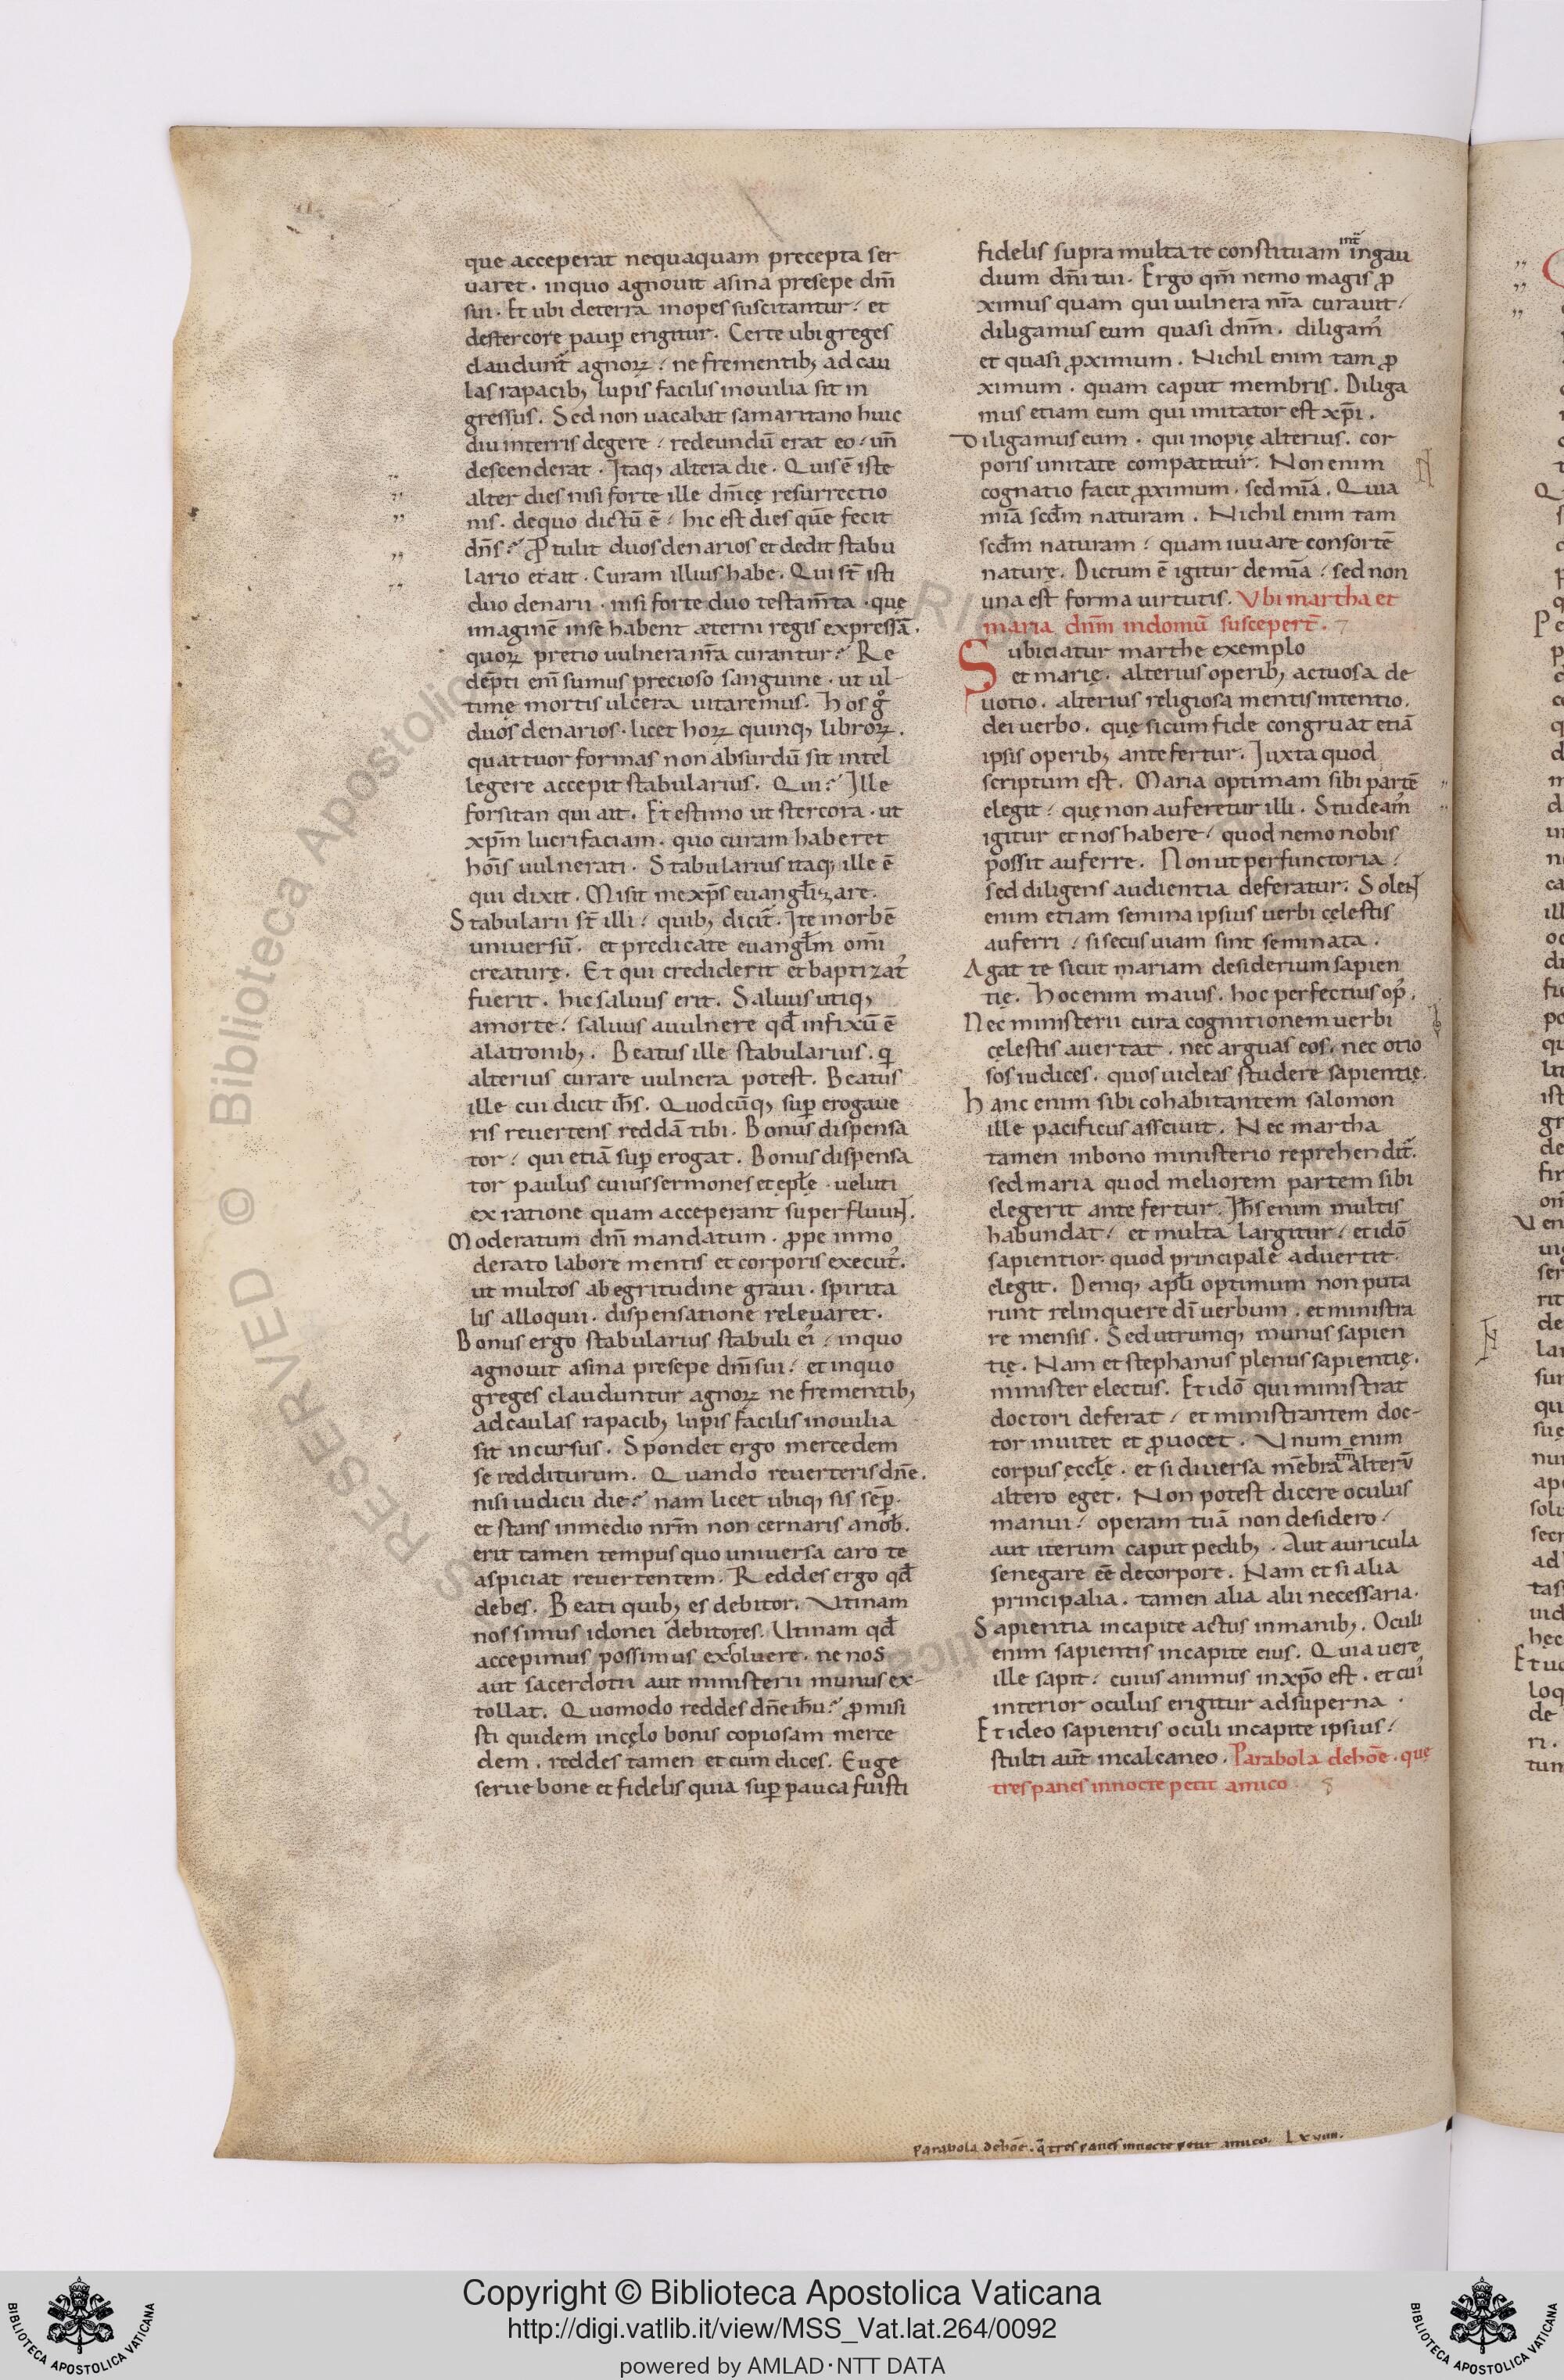 que acceperat nequaquam precepta ser
uaret. inquo agnouit asina presepe dn̄i
sui. Et ubi deterra inopes suscitantur. et
destercore paup̄ erigitur. Certe ubi greges
claudunt̄ agnoꝝ. ne frementib; ad cau
las rapacib; lupis facilis inouilia sit in
gressus. Sed non uacabat samaritano huic
diu interris degere. redeundū erat eo. un̄
descenderat. Itaq; altera die. Quis ē iste
alter dies nisi forte ille dn̄icę resurrectio
nis. dequo dictū ē. hic est dies quē fecit
dn̄s? Ptulit duos denarios et dedit stabu
lario et ait. Curam illius habe. Qui st̄ isti
duo denarii. nisi forte duo testam̄ta. quę
imaginē inse habent æterni regis expressā.
quoꝝ pretio uulnera nr̄a curantur? Re
dēpti eni̅ sumus precioso sanguine. ut ul-
timę mortis ulcera uitaremus. Hos gͦ
duos denarios. licet hoꝝ quinq; libroꝝ.
quattuor formas non absurdū sit intel
legere accepit stabularius. Qui? Ille
forsitan qui ait. Et estimo ut stercora. ut
xp̄m lucrifaciam. quo curam haberet
hoi̅s uulnerati. Stabularius itaq; ille ē
qui dixit. Misit me xp̄s euangl̄izare.
Stabularii st̄ illi. quib; dicit̄. Ite in orbē
uniuersū. et predicate euangl̄m om̄i
creaturę. Et qui crediderit et baptizat᾽
fuerit. hic saluus erit. Saluus utiq;
amorte. saluus auulnere qd̄ infixū ē
alatronib;. Beatus ille stabularius. q̇
alterius curare uulnera potest. Beatus
ille cui dicit ih̄s. Quodcūq; sup̄ erogaue
ris reuertens reddā tibi. Bonus dispensa
tor. qui etiā sup̄ erogat. Bonus dispensa
tor paulus cuius sermones et epl̄ę. ueluti
ex ratione quam acceperant superfluunt.
Moderatum dn̄i mandatum. ꝓpe inmo
derato labore mentis et corporis execut᾽.
ut multos ab egritudine graui. spirita
lis alloquii. dispensatione releuaret.
Bonus ergo stabularius stabuli ei᾽. inquo
agnouit asina presepe dn̄i sui. et inquo
greges clauduntur agnoꝝ ne frementib;
ad caulas rapacib; lupis facilis inouilia
sit incursus. Spondet ergo mercedem
se redditurum. Quando reuerteris dn̄e.
nisi iudicii die? nam licet ubiq; sis sēp̄.
et stans inmedio nr̄m non cernaris anob̄.
erit tamen tempus quo uniuersa caro te
aspiciat reuertentem. Reddes ergo qd̄
debes. Beati quib; es debitor. Vtinam
nos simus idonei debitores. Utinam qd̄
accepimus possimus exsoluere. ne nos
aut sacerdotii aut ministerii munus ex-
tollat. Quomodo reddes dn̄e ih̄u? ꝓmisi
sti quidem incęlo bonis copiosam merce
dem. reddes tamen et cum dices. Euge
serue bone et fidelis quia sup̄ pauca fuisti
fidelis supra multa te constituam int̄ ingau
dium dn̄i tui. Ergo qm̄ nemo magis ꝓ
ximus quam qui uulnera nr̄a curauit.
diligamus eum quasi dnm̄. diligam᾽
et quasi ꝓximum. Nichil enim tam ꝓ
ximum. quam caput membris. Diliga
mus etiam eum qui imitator est xp̄i.
Diligamus eum. qui inopię alterius. cor
poris unitate compatitur. Non enim
cognatio facit ꝓximum. sed mi̅a. Quia
mi̅a scd̄m naturam. Nichil enim tam
scd̄m naturam. quam iuuare consortē
naturę. Dictum ē igitur de mi̅a. sed non
una est forma uirtutis. Vbi martha et
maria dnm̄ indomū susceper̄t.
Subiciatur marthe exemplo
et marię. alterius operib; actuosa de
uotio. alterius religiosa mentis intentio.
dei uerbo. quę si cum fide congruat etiā
ipsis operib; antefertur. Iuxta quod
scriptum est. Maria optimam sibi partē
elegit. quę non auferetur illi. Studeam᾽
igitur et nos habere. quod nemo nobis
possit auferre. Non ut perfunctoria.
sed diligens audientia deferatur. Solent
enim etiam semina ipsius uerbi cęlestis
auferri. si secus uiam sint seminata.
Agat te sicut mariam desiderium sapien
tię. Hoc enim maius. hoc perfectius op᾽.
Nec ministerii cura cognitionem uerbi
cęlestis auertat. nec arguas eos. nec otio
sos iudices. quos uideas studere sapientię.
Hanc enim sibi cohabitantem salomon
ille pacificus assciuit. Nec martha
tamen inbono ministerio reprehendit̄.
sed maria quod meliorem partem sibi
elegerit ante fertur. Ih̄s enim multis
habundat. et multa largitur. et idō
sapientior. quod principale aduertit
elegit. Deniq; apl̄i optimum non puta
runt relinquere dī uerbum. et ministra
re mensis. Sed utrumq; munus sapien
tię. Nam et stephanus plenus sapientię.
minister electus. Et idō qui ministrat
doctori deferat. et ministrantem doc-
tor inuitet et ꝓuocet. Unum enim
corpus ęccl̄ę. et si diuersa mēbra tm̄ alterū
altero eget. Non potest dicere oculus
manui. operam tuā non desidero.
aut iterum caput pedib;. Aut auricula
se negare eē decorpore. Nam et si alia
principalia. tamen alia alii necessaria.
Sapientia incapite actus inmanib;. Oculi
enim sapientis incapite eius. Quia uere
ille sapit. cuius animus in xp̄o est. et cui᾽
interior oculus erigitur adsuperna.
Et ideo sapientis oculi incapite ipsius.
stulti aūt incalcaneo. Parabola dehoe̅. quę
tres panes innocte petit amico.
Parabola dehoe̅. q̄ tres panes innocte petit amico. LXVIII.
Copyright © Biblioteca Apostolica Vaticana
http://digi.vatlib.it/view/MSS_Vat.lat.264/0092
powered by AMLAD·NTT DATA